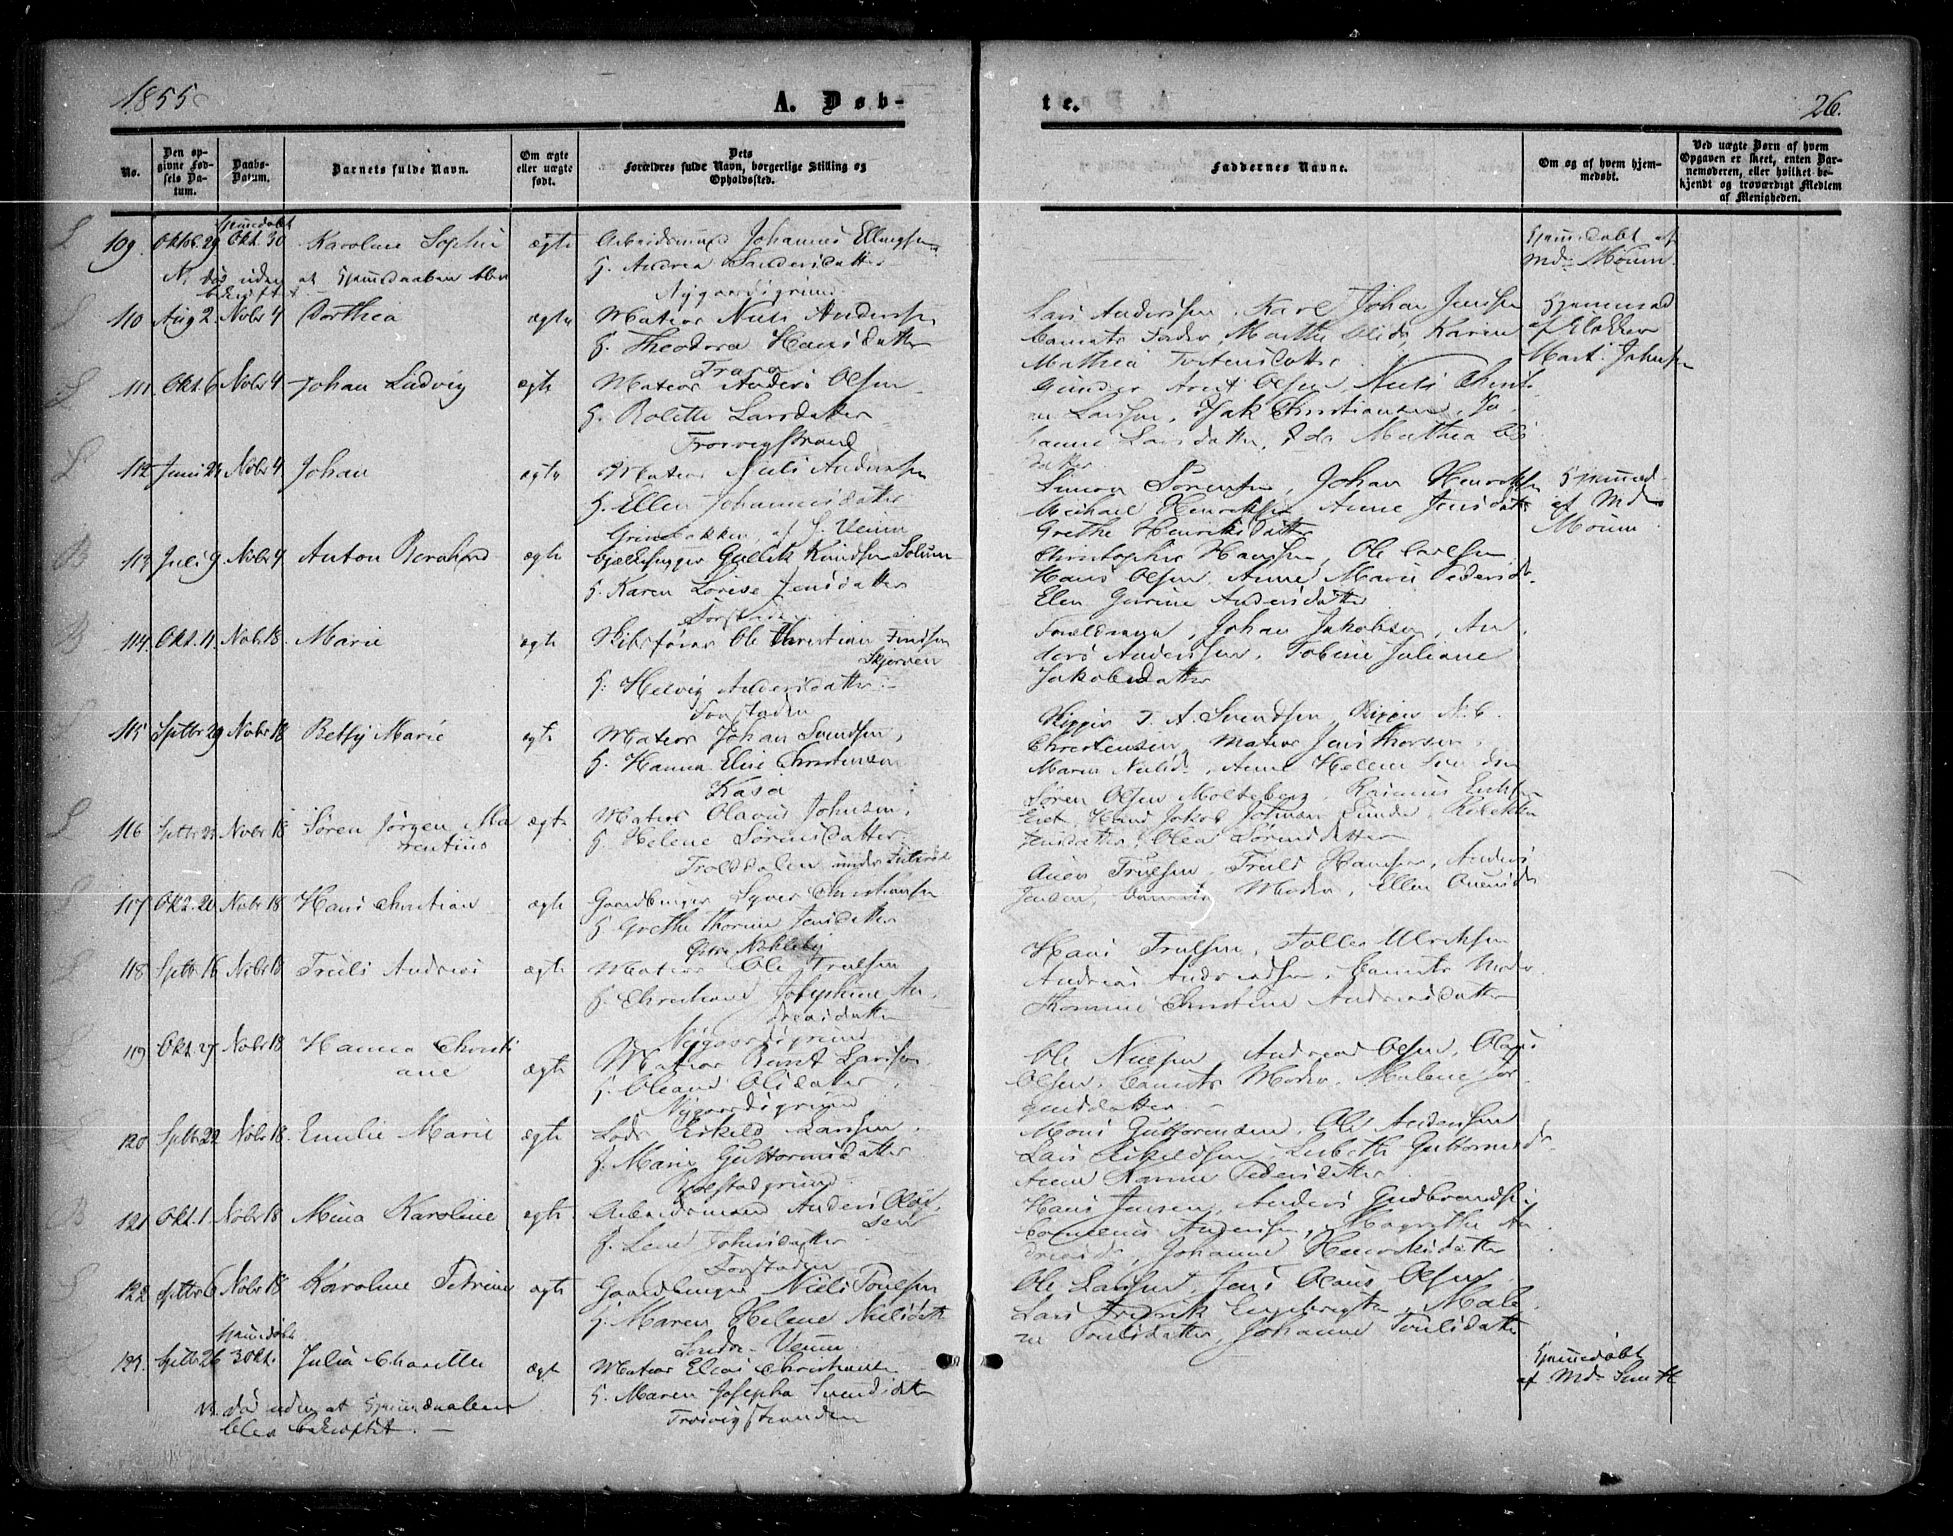 1855
A. Døb-
te.
26.
No.
Den op-
givne Fød-
sels Da-
tum.
Daabs-
Datum.
Barnets fulde Navn.
Om ægte
eller uægte
født.
Dets
Forældres fulde Navn, borgerlige Stilling og
Opholdssted.
Faddernes Navne.
Om og af hvem hjem-
medøbt.
Ved uægte Børn af hvem
Opgaven er skeet, enten Bar-
nemoderen, eller hvilket be-
kjendt og troværdigt Medlem
af Menigheden.
Hjemmedøbt
L 109. Oktob. 29 Okt. 30 Karoline Sophie ægte Arbeidsmand Johannes Ellingsen
H. Andrea Landersdatter
Nygaardsgrund
N. død uden at Hjemmedaaben blev
bekræftet
Hjemmedøbt af
Md. Moum
L 110 Aug 2. Nobr 4 Dorthea ægte Matros Niels Anderssen
H. Theodora Hansdatter
Trara
Lars Anderssen, Karl Johan Jenssen
Barnets Fader, Marthe Olsd. Karen
Mathea Torstensdatter
Hjemmed.
af Klokker
Mart. Johnsen
L 111 Okt. 6 Nobr 4 Johan Ludvig ægte Matros Anders Olsen
H. Bolette Larsdatter
Trosvigstrand
Gunder Arnt Olsen, Niels Christi-
an Larssen, Isak Christiansen, Jo-
hanne Larsdatter, Ida Mathea Ols
datter
L 112 Juni 24 Nobr 4 Johan ægte Matros Niels Anderssen
H. Ellen Johannesdatter
af S. Veum
Simon Sørensen, Johan Henriksen
Michael Henriksen, Anne Jensdatter
Grethe Henriksdatter
Hjemmed.
af Md.
Moum
B 113 Juli 9 Nobr 4 Anton Bernhard ægte Gullik Knudsen Solum
H. Karen Lovise Jensdatter
Forstaden
Christopher Hanssen, Ole Carlsen
Hans Olsen, Anne Marie Pedersdr.
Elen Gurine Andersdatter
B 114 Okt. 11. Nobr 18. Marie ægte Skibsfører Ole Christian Findsen
Skjørven
H. Helvig Andersdatter
Forstaden
Forældrene, Johan Jakobsen, An-
ders Anderssen, Tobine Juliane
Jakobsdatter
L 115 Septbr 29 Nobr 18 Betsy Marie ægte Matros Johan Svendsen,
H. Hanna Elise Christensen
Kasa
Skipper T. A. Svendsen, Skipper N. C.
Christensen, Matros Jens Thorsen,
Maren Nielsd., Anne Helene
L 116 Septbr Nobr 18 Søren Jørgen Ma
rentius ægte Matros Olavus Johnsen,
H. Helene Sørensdatter
Troldalen under
Søren Olsen Molteberg, Rasmus
Jakob Johnsen Lunde, Rebekka
Jensdatter, Olea Sørensdatter
L 117 Okt. 20 Nobr 18 Hans Christian ægte Gaardbruger Syver Christiansen
H. Grethe Thorine Jensdatter
Østre Nøkleby
Truelsen, Truls Hanssen, Anders
Jensen, Barnets Moder, Ellen
L 118 Septbr 16 Nobr 18 Truls Andreas ægte Matros Ole Trulsen
H. Christiane Josephine An-
dreasdatter
Nygaardsgrund
Hans Trulsen, Tolles Ulriksen
Andreas Andreassen, Barnets Moder
Thorine Christine Andreasdatter
L 119 Okt. 27 Nobr 18 Hanna Christi
ane ægte Matros Bernt Larssen
H. Oleane Olsdatter
Nygaardsgrund
Ole Nielsen, Andreas Olsen, Olaus
Olsen, Barnets Moder, Malene Jør-
gensdatter
L 120 Septbr 22 Nobr 18. Emilie Marie ægte Lods Eskild Larssen
H. Marie Guttormsdatter
Rolstadgrund
Mons Guttormsen, Ole Anderssen
Lars Eskildsen, Lisbeth Guttormsdr.
Anne Karine Pedersdatter
B 121 Okt. 1 Nobr 18 Mina Karoline ægte Arbeidsmand Anders Olav-
sen
H. Lene Johnsdatter
Forstaden
Hans Jensen, Anders Gudbrandsen
Cornelius Anderssen, Magrethe An-
dreasd., Johanne Henriksdatter
L 122 Septbr 6 Nobr 18 Karoline Petrine ægte Gaardbruger Niels Poulsen
H. Maren Helene Nielsdatter
Søndre Veum
Ole Larssen, Jens Olaus Olsen,
Lars Fredrik Engebrigtsen, Male-
ne Poulsdatter, Johanne Poulsdatter
Hjemmedøbt
L 123. Septbr 26 30 Okt. Julia Charlotte ægte Matros Elias Christiansen
H. Maren Josepha Svendsdatter
Trosvigstranden
N. død uden at Hjemmedaaben
blev bekræftet.
Hjemmedøbt
af Md. Smith